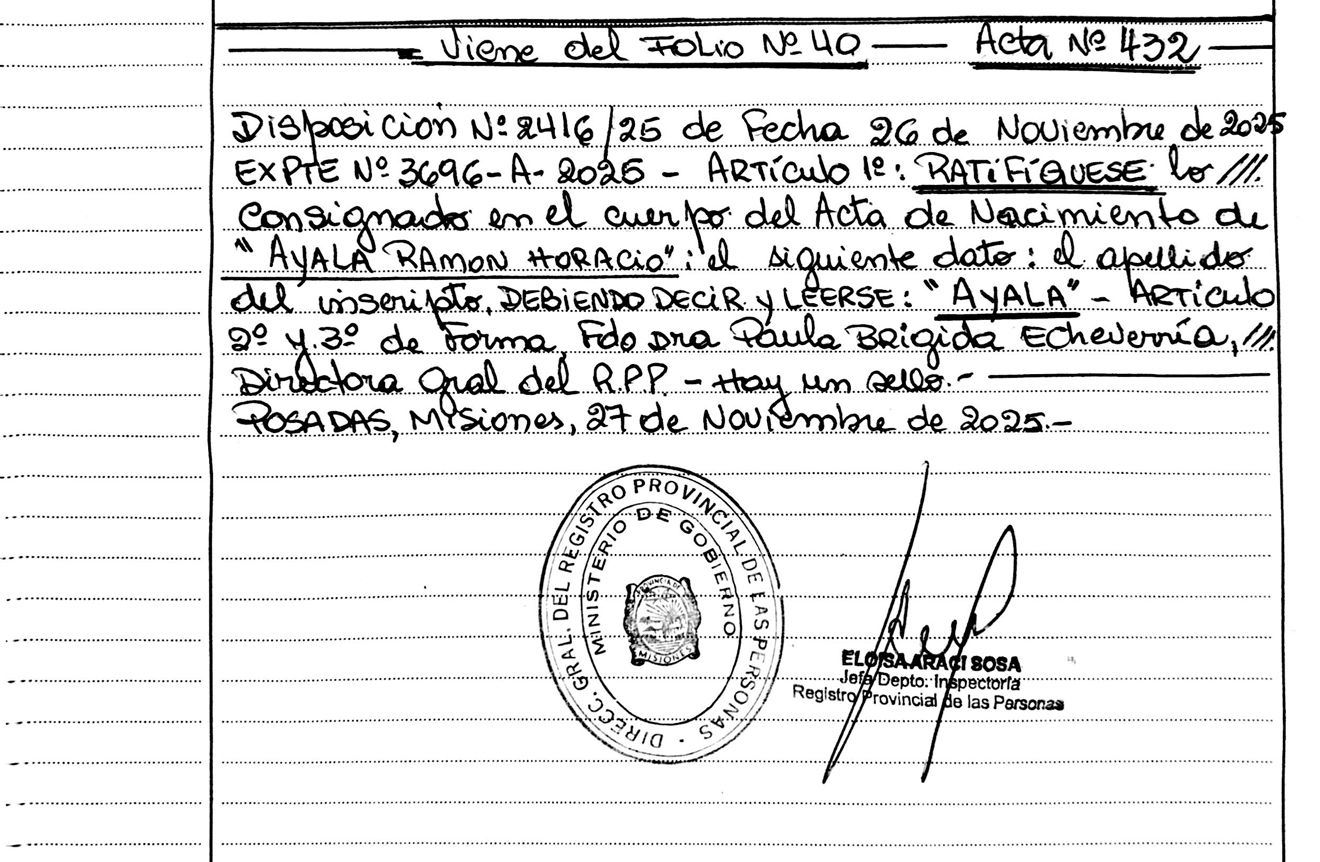 Viene del FOLIO Nº 40 — Acta Nº 432
Disposición Nº 2416/25 de Fecha 26 de Noviembre de 2025
EXPTE Nº 3696-A-2025 - ARTÍCULO 1º: RATIFÍQUESE lo ///.
Consignado en el cuerpo del Acta de Nacimiento de
"AYALA RAMON HORACIO": el siguiente dato: el apellido
del inscripto, DEBIENDO DECIR y LEERSE: "AYALA" - ARTÍCULO
2º y 3º de Forma, Fdo Dra Paula Brigida Echeverría, ///.
Directora Gral del R.P.P. - Hay un sello.-
POSADAS, Misiones, 27 de Noviembre de 2025.-
DIRECC. GRAL. DEL REGISTRO PROVINCIAL DE LAS PERSONAS -
MINISTERIO DE GOBIERNO
PROVINCIA DE
MISIONES
ELOISA ARACI SOSA
Jefa Depto. Inspectoría
Registro Provincial de las Personas